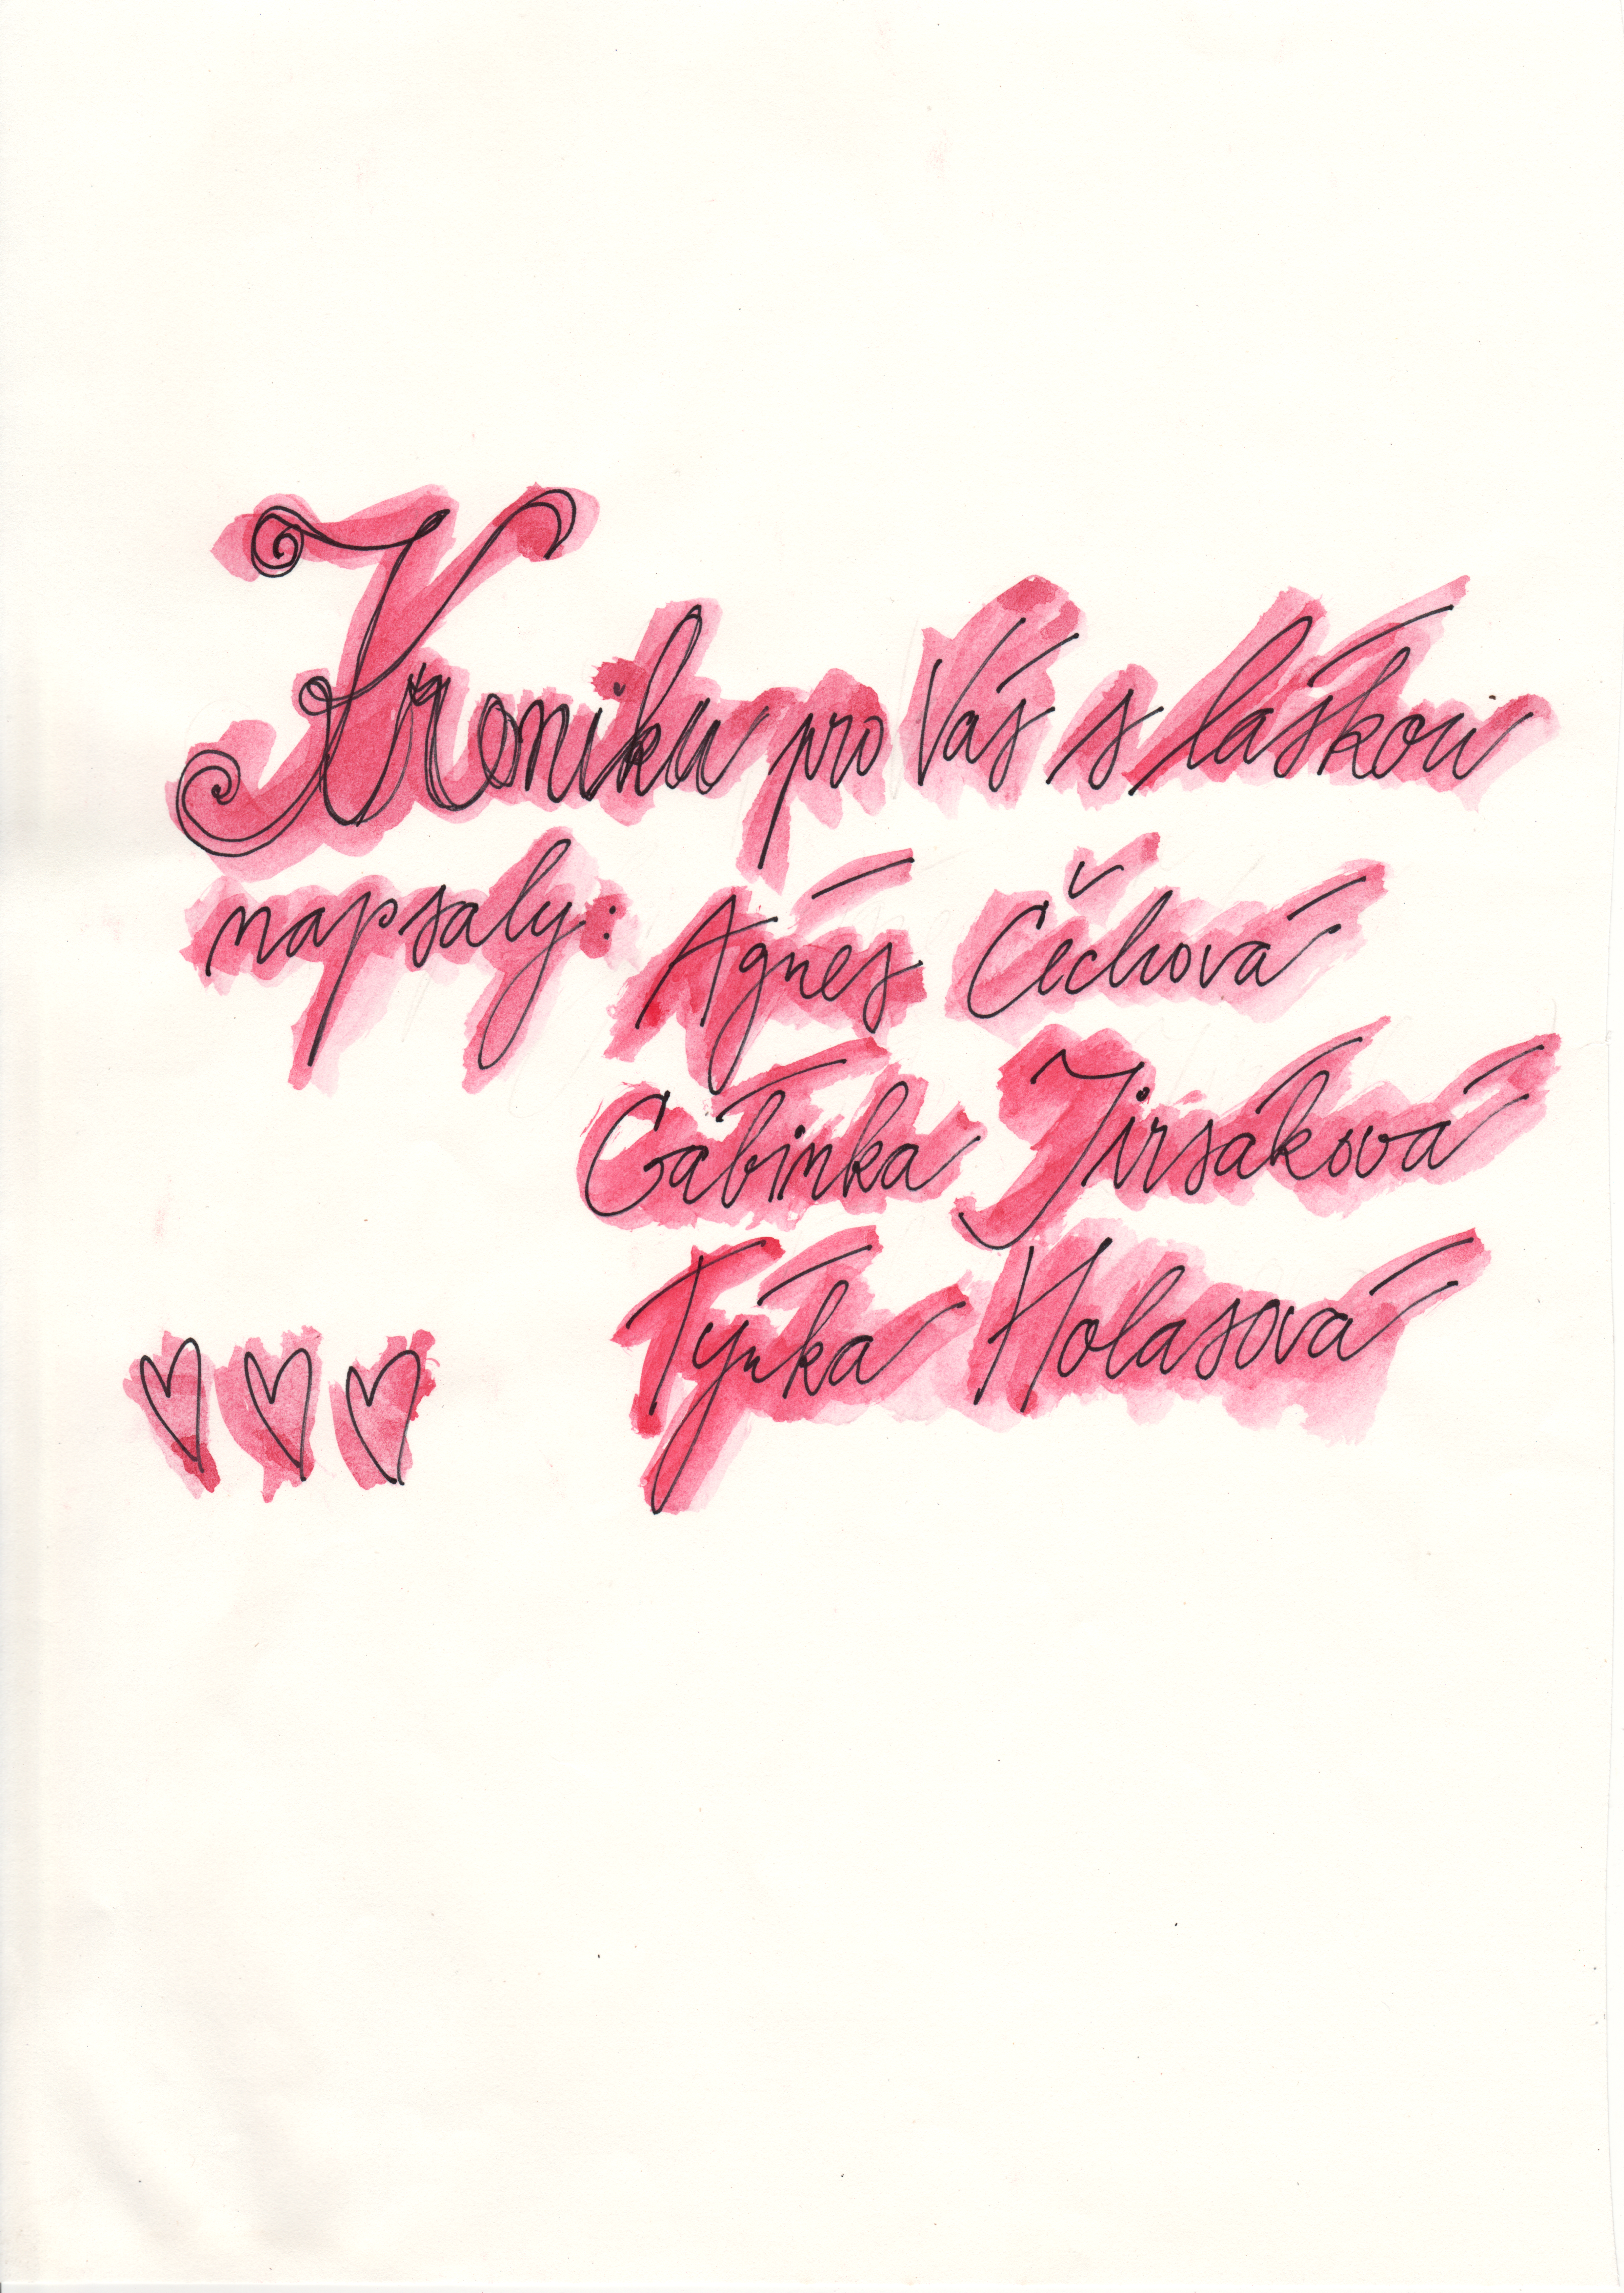 Kroniku pro Vás s láskou
napsaly: Agnés Čechová
Gabinka Jirsáková
Týnka Holasová